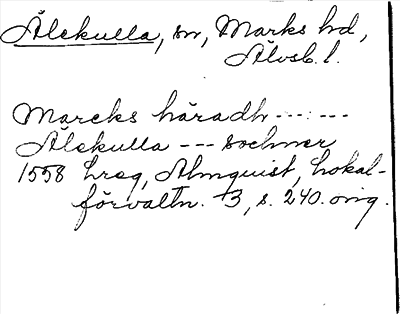 Älekulla, sn, Marks hd,
Älvsb. l.
Marcks häradh --- : ---
Älekulla --- sochner
1558 Lreg, Almquist, Lokal-
förvaltn. 3, s. 240. orig.